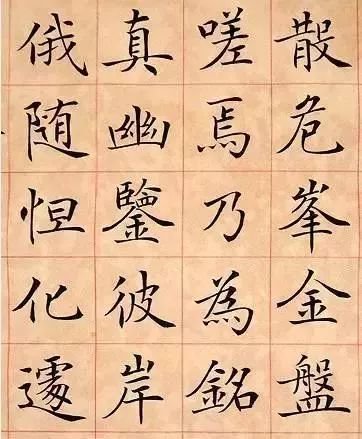 散危峯金盤
嗟焉乃為銘
真幽鑒彼岸
俄随怛化遽